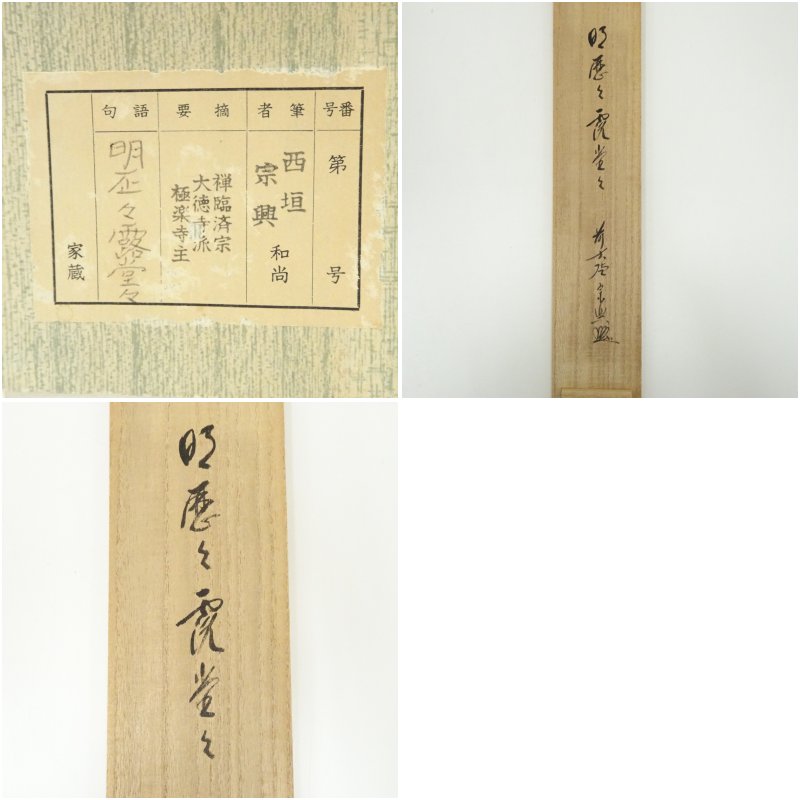 番号
第 号
筆者
西垣
宗興
和尚
摘要
禅臨済宗
大徳寺派
極楽寺主
語句
明歴々露堂々
家蔵
明歴々露堂々
明歴々露堂々